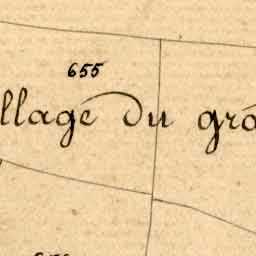 655
llage du gra